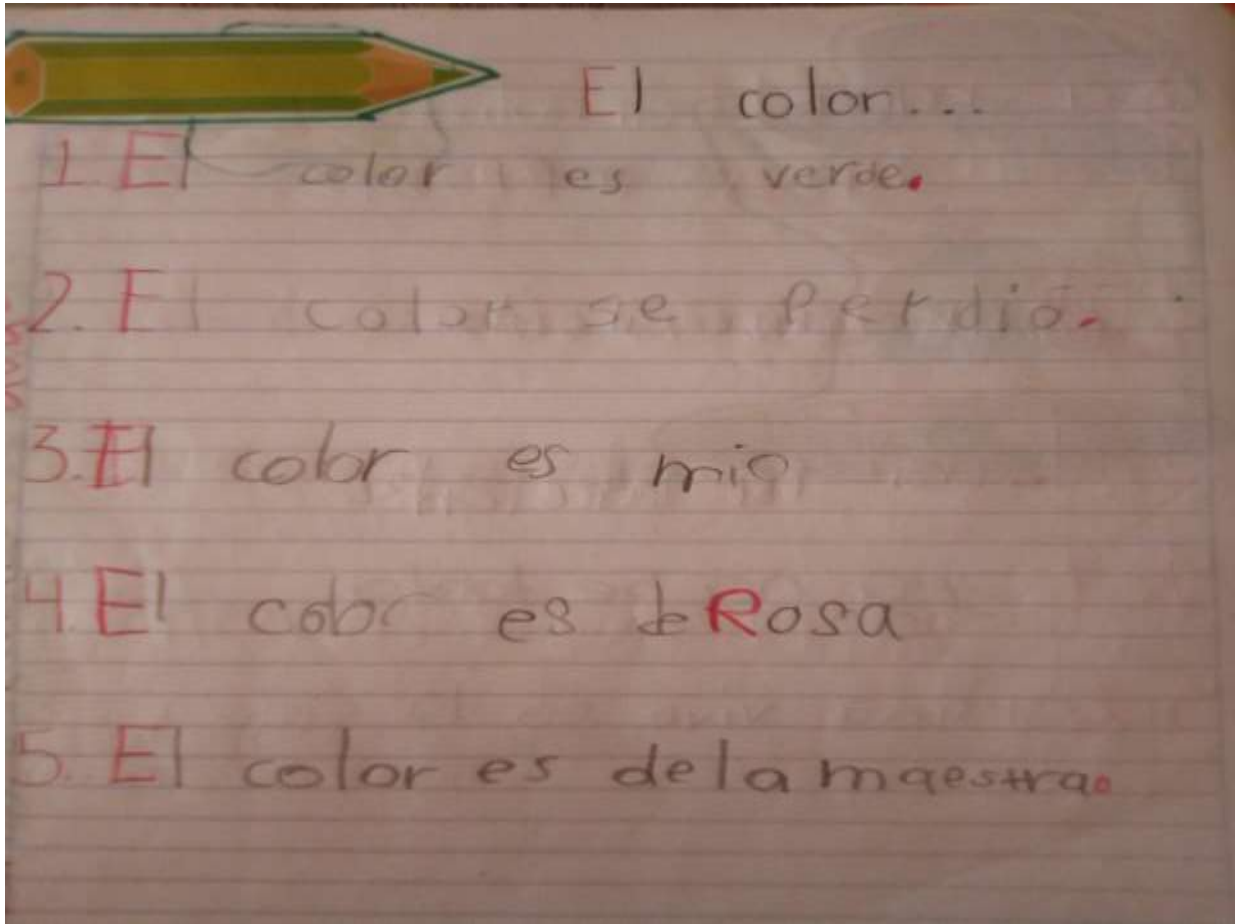 El color...
1. El color es verde.
2. El color se perdió.
3. El color es mio
4. El color es de Rosa
5. El color es dela maestra.